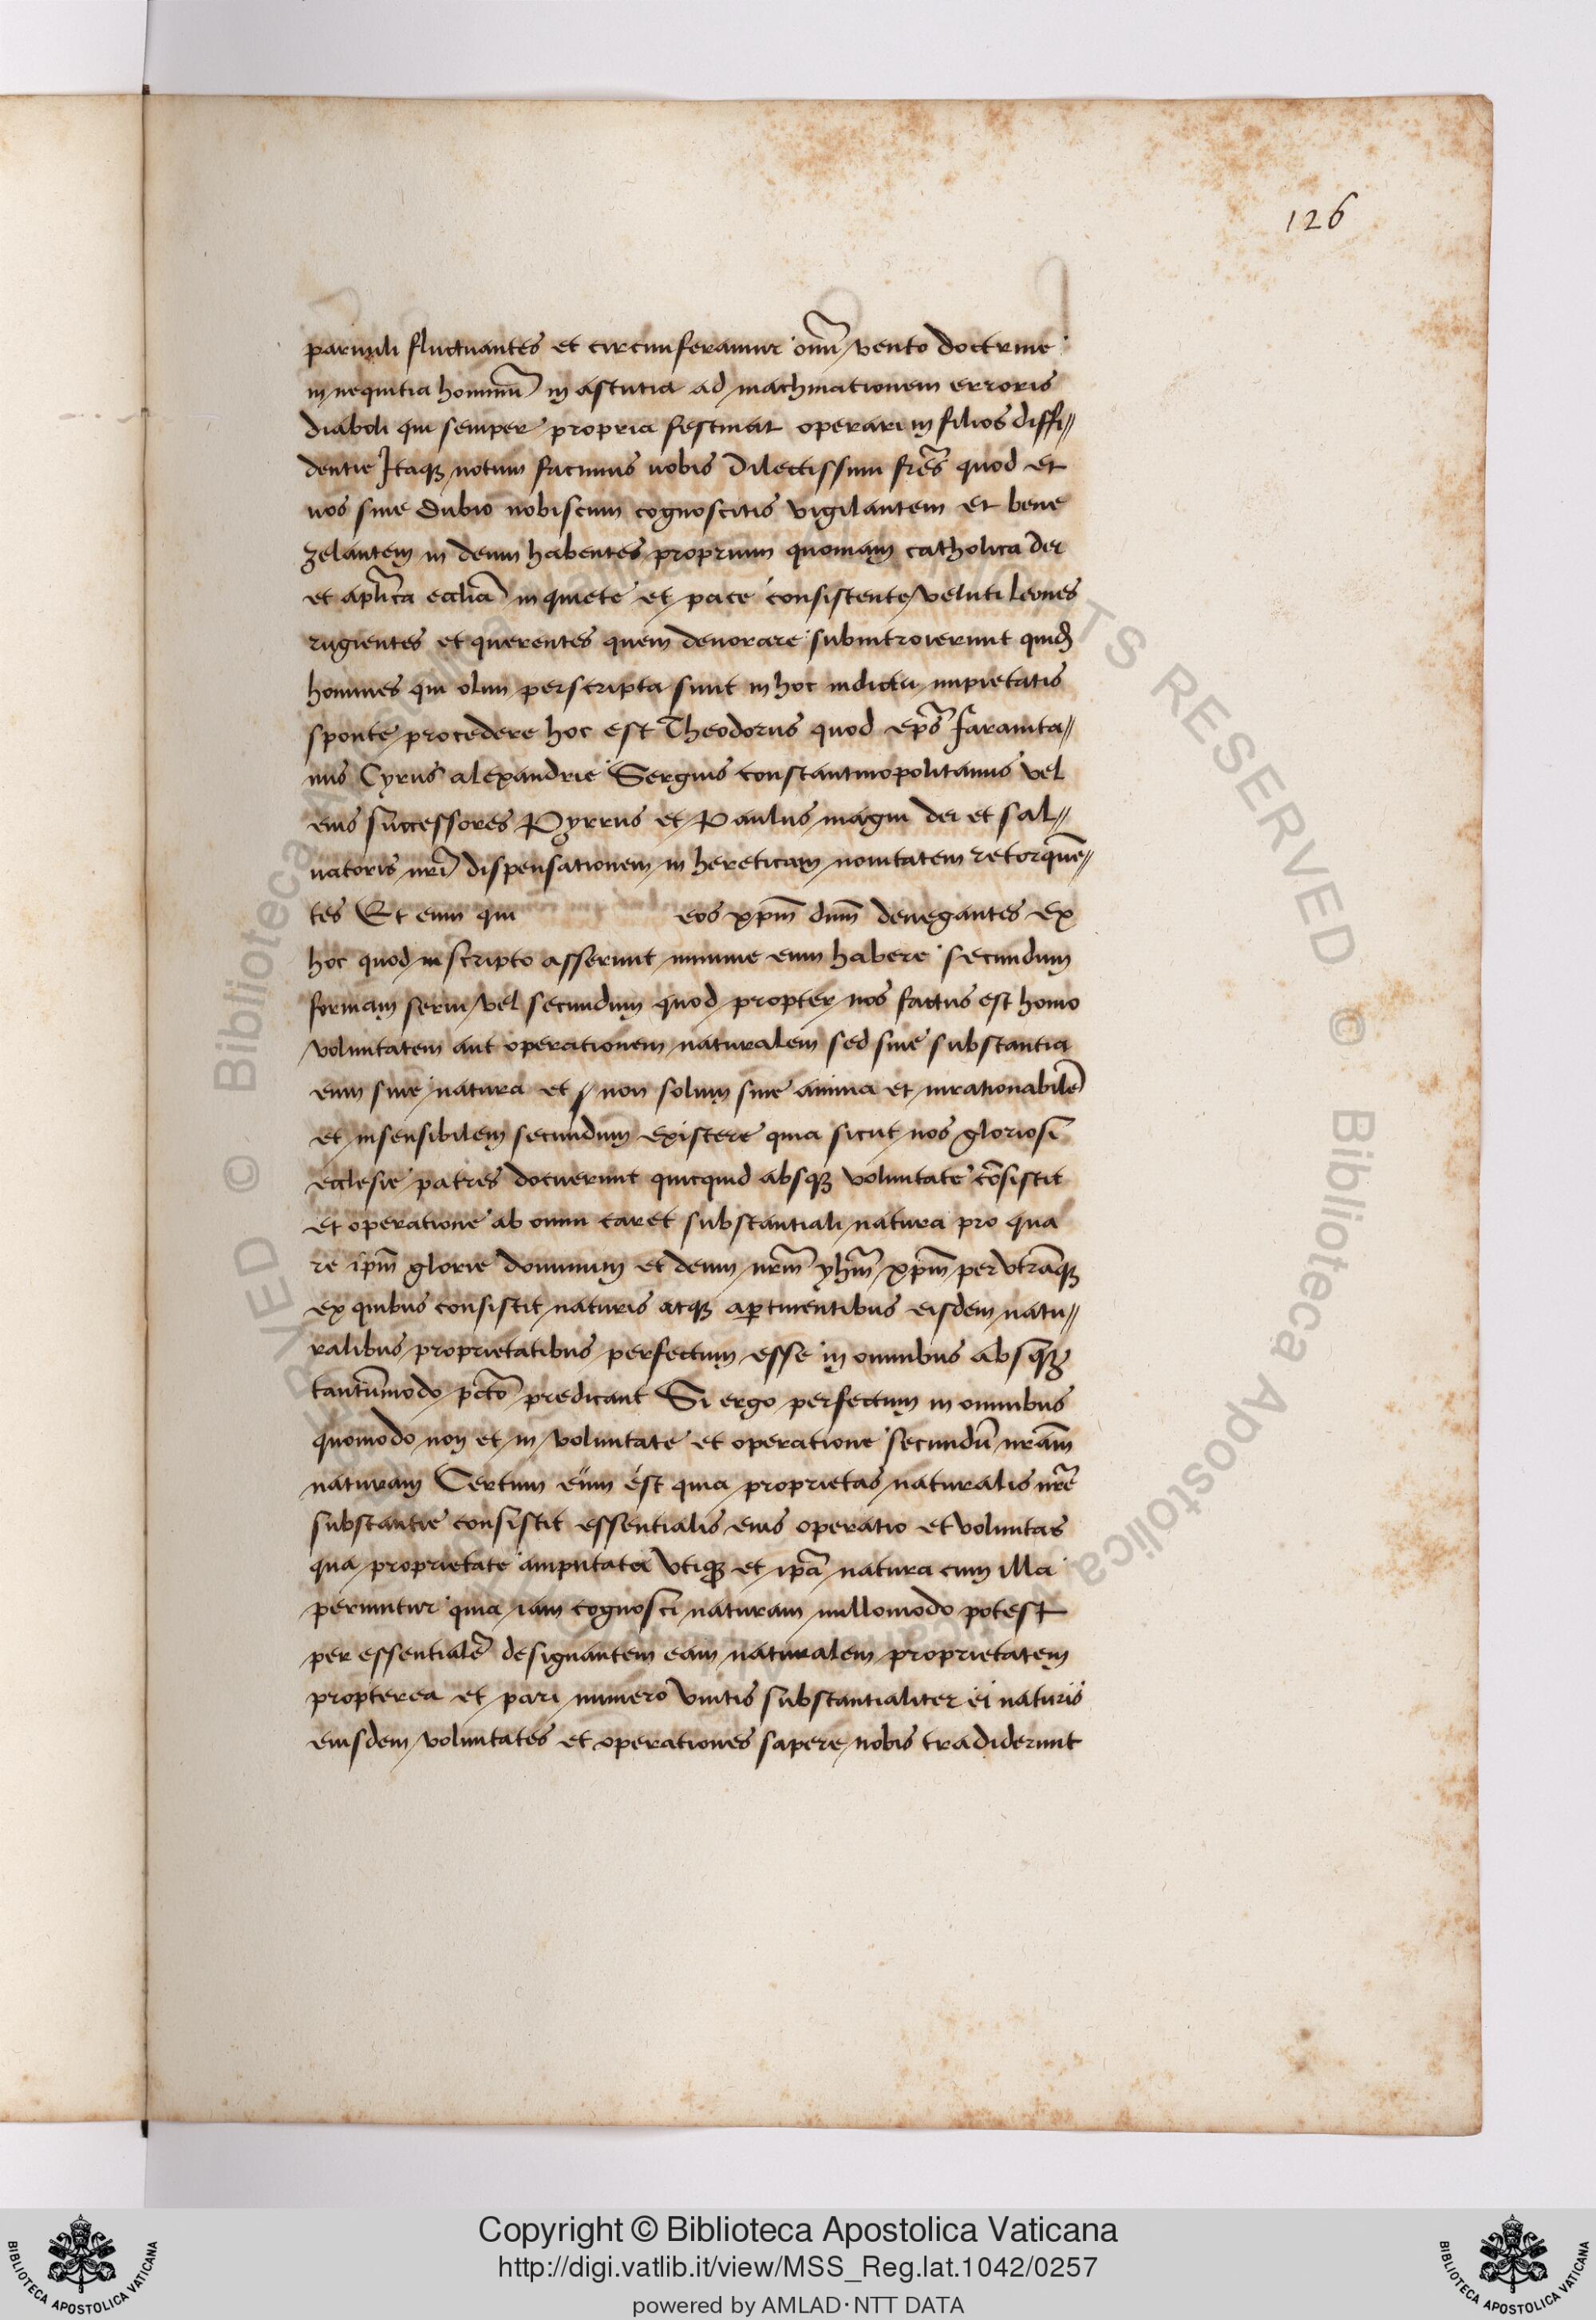 126
paruuli fluctuantes et circunferamur omi᷆ vento doctrine
in nequitia hominu᷆ in astutia ad machinationem erroris
diaboli qui semper propria festinat operari in filios diffi//
dentie Itaqꝫ notum facimus uobis Dilectissimi fre᷆s quod et
uos sine dubio nobiscum cognoscitis vigilantem et bene
zelantem in deum habentes proprium quoniam catholica dei
et apli᷆ca eccli᷆a in quiete et pace consistente veluti leones
rugientes et querentes quem deuorare subintroierunt quidē
homines qui olim perscripta sunt in hoc indictu impietatis
sponte procedere hoc est Theodorus quod ep᷆s faranita//
nus Cyrus alexandrie Sergius constantinopolitanus vel
eius successores Pyrrus et Paulus magni dei et sal//
uatoris nr᷆i dispensationem in hereticam nouitatem retorquē//
tes Et eum qui eos xp᷆m dn᷆m denegantes ex
hoc quod in scripto asserunt minime eum habere secundum
formam serui vel secundum quod propter nos factus est homo
voluntatem aut operationem naturalem sed sine substantia
eum sine natura et non solum sine anima et inrationabilē
et insensibilem secundum existere quia sicut nos gloriosi
ecclesie patres docuerunt quicquid absqꝫ voluntate cōsistit
et operatione ab omni caret substantiali natura pro qua
re ip᷆m glorie dominum et deum nr᷆m yh᷆m xp᷆m per vtrāqꝫ
ex quibus consistit naturis atqꝫ aꝑtinentibus eisdem natu//
ralibus proprietatibus perfectum esse in omnibus absqꝫ
tantūmodo pct᷆o predicant Si ergo perfectum in omnibus
quomodo non et in voluntate et operatione secundū nr᷆am
naturam Certum eīm est quia proprietas naturalis nr᷆e
substantie consistit essentialis eius operatio et voluntas
qua proprietate amputata vtiqꝫ et ip᷆a natura cum illa
perimitur quia iam cognosci naturam nullomodo potest
per essentialē designantem eam naturalem proprietatem
propterea et pari numero vnitis substantialiter ei naturis
eiusdem voluntates et operationes sapere nobis tradiderunt
© Biblioteca Apostolica
RESERVED © Biblioteca Apostolica
Copyright © Biblioteca Apostolica Vaticana
http://digi.vatlib.it/view/MSS_Reg.lat.1042/0257
powered by AMLAD·NTT DATA
BIBLIOTECA APOSTOLICA VATICANA
BIBLIOTECA APOSTOLICA VATICANA